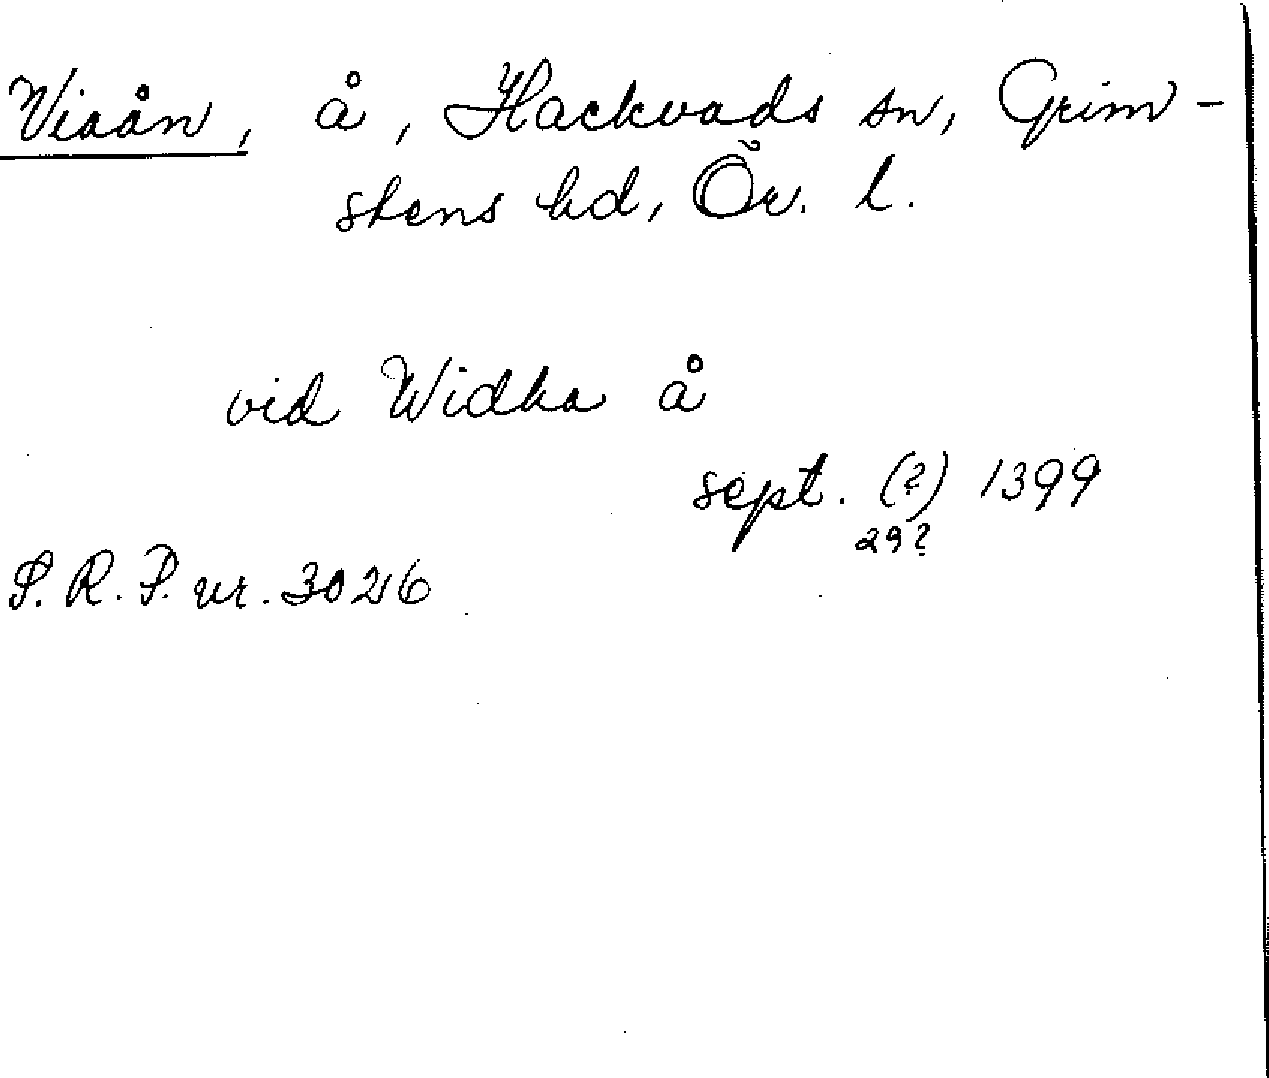 Viaån, å, Hackvads sn, Grim-
stens hd, Ör. l.
vid Widha å
sept. (?) 1399
29?
S. R. P. nr. 3026